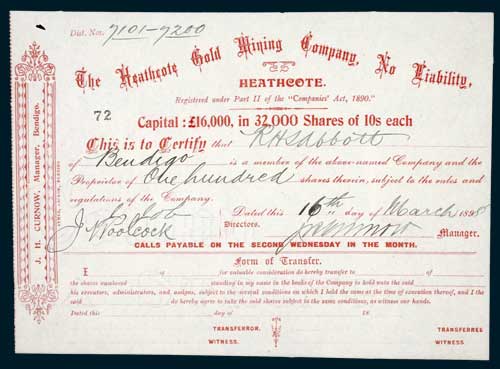 Dist. Nos. 7101-7200
The Heathcote Gold Mining Company, No Liability,
HEATHCOTE.
Registered under Part II of the "Companies' Act, 1890."
72
Capital: £16,000, in 32,000 Shares of 10s each
This is to Certify that R H S Abbott
of Bendigo is a member of the above-named Company and the
Proprietor of One hundred shares therein, subject to the rules and
regulations of the Company.
Dated this 16th day of March 1898
J. N. Poolcock Directors. Manager.
CALLS PAYABLE ON THE SECOND WEDNESDAY IN THE MONTH.
Form of Transfer.
I of for valuable consideration do hereby transfer to of
the shares numbered standing in my name in the books of the Company to hold unto the said
his executors, administrators, and assigns, subject to the several conditions on which I held the same at the time of execution thereof, and I the
said do hereby agree to take the said shares subject to the same conditions, as witness our hands.
Dated this day of 18
TRANSFEROR. TRANSFEREE
WITNESS. WITNESS
J. H. CURNOW, Manager, Bendigo.